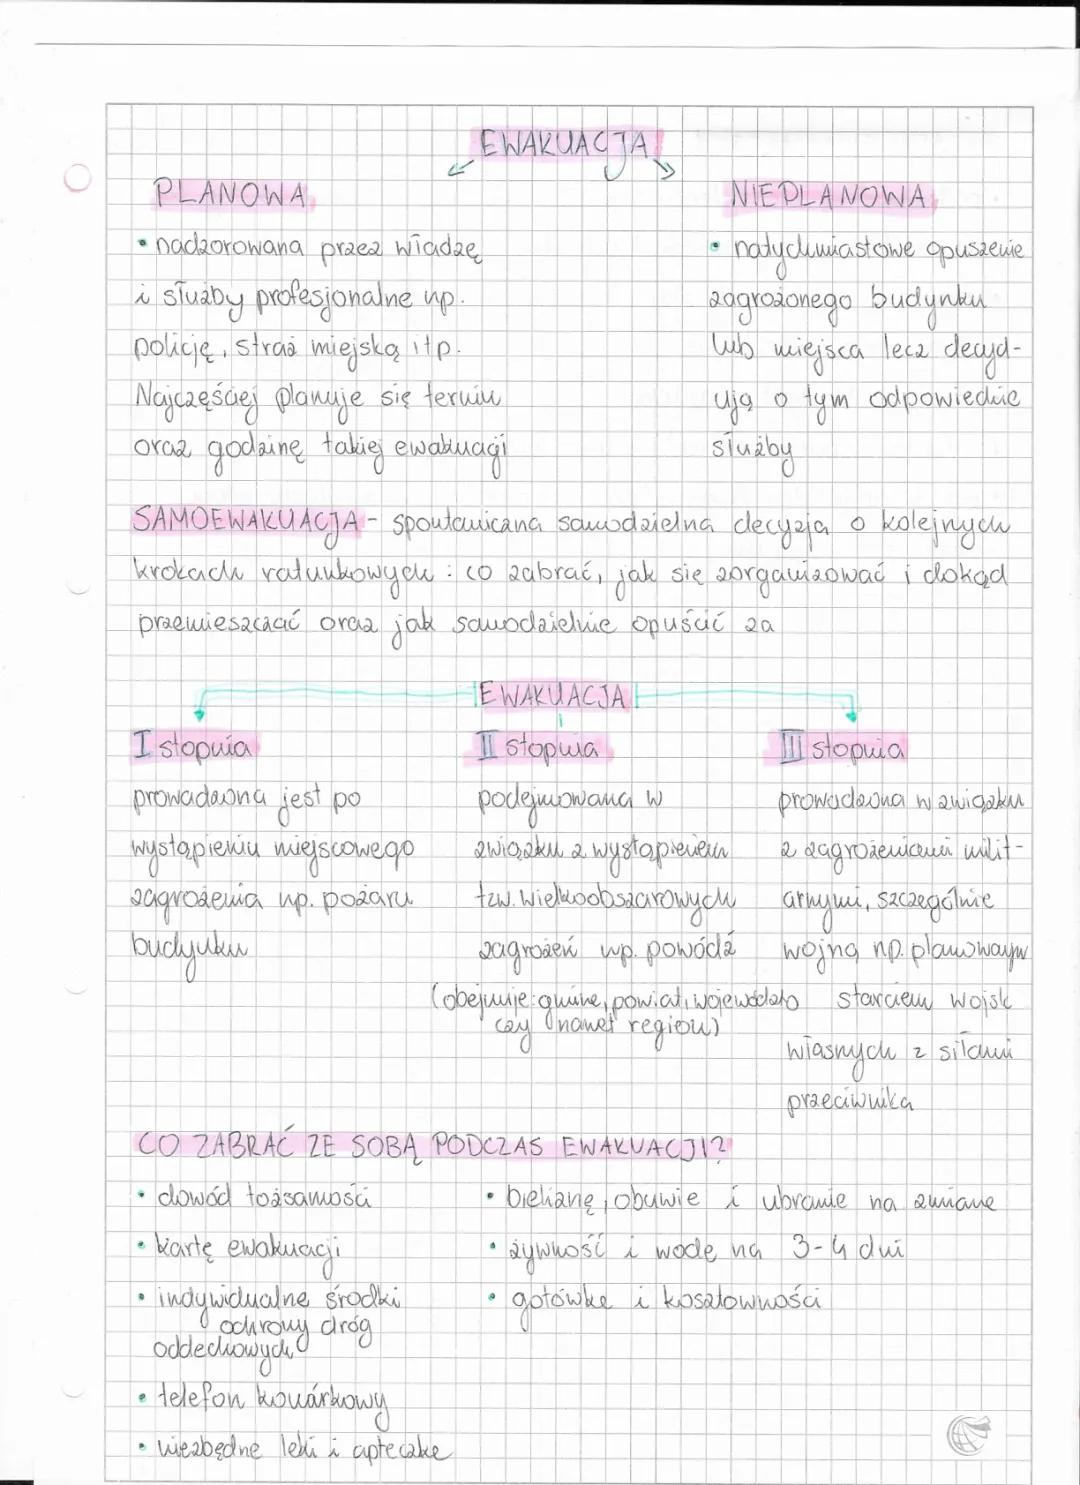 EWAKUACJA
PLANOWA
• nadzorowana przez władzę
i służby profesjonalne np.
policję, straż miejską itp.
Najczęściej planuje się termin
oraz godzinę takiej ewakuacji
NIEPLANOWA
• natychmiastowe opuszenie
zagrożonego budynku
lub miejsca lecz decyd-
ują o tym odpowiednie
służby
SAMOEWAKUACJA - spontaniczna samodzielna decyzja o kolejnych
krokach ratunkowych: co zabrać, jak się zorganizować i dokąd
przemieszczać oraz jak samodzielnie opuścić za
EWAKUACJA
I stopnia
prowadzona jest po
wystąpieniu miejscowego
zagrożenia np. pożaru
budynku
II stopnia
podejmowana w
związku z wystąpieniem
tzw. wielkoobszarowych
zagrożeń np. powódź
(obejmuje: gminę, powiat, województwo
czy nawet region)
III stopnia
prowadzona w związku
z zagrożeniami milit-
arnymi, szczególnie
wojną np. planowanym
starciem wojsk
własnych z siłami
przeciwnika
CO ZABRAĆ ZE SOBĄ PODCZAS EWAKUACJI?
• dowód tożsamości
• kartę ewakuacji
• indywidualne środki
ochrony dróg
oddechowych
• telefon komórkowy
• niezbędne leki i apteczkę
• bieliznę, obuwie i ubranie na zmianę
• żywność i wodę na 3-4 dni
• gotówkę i kosztowności